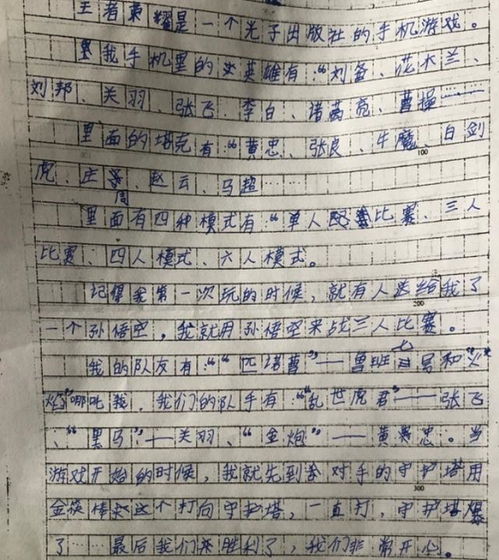 王者荣耀是一个光子出版社的手机游戏。
我手机里的英雄有:“刘备、花木兰、
刘邦、关羽、张飞、李白、诸葛亮、曹操……
里面的塔克有“黄忠、张良、牛魔、白剑
100
虎、庄周、赵云、马超……
里面有四种模式有“单人比赛、三人
比赛、四人模式、六人模式。
记得我第一次玩的时候，就有人送给我了
200
一个孙悟空，我就用孙悟空来战三人比赛。
我的队友有:“匹诺曹”——鲁班七号和“火
焰”哪吒，我们的队手有:“乱世虎君”——张飞
、“黑马”——关羽、“金炮”——黄忠。当
游戏开始的时候，我就先到对手的守护塔用
300
金筷棒这个打向守护塔，一直打，守护塔爆
了……最后我们胜利了，我们非常开心。